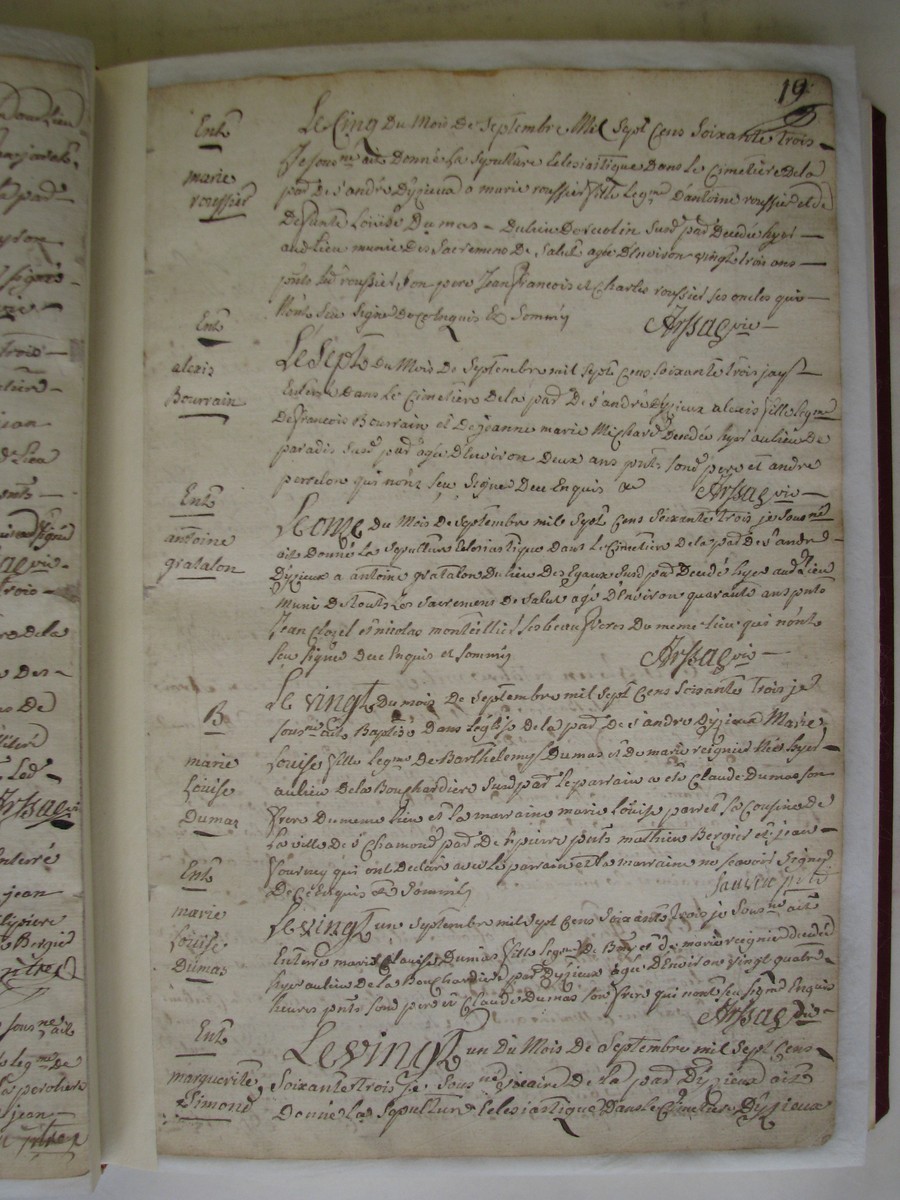 19
Ent
marie
roussier
Le Cinq Du Mois De Septembre Mil Sept Cens Soixante trois
Je sous.né ait Donné La Sepulture Eclesiastique Dans Le Cimetière De la
par De s.andré Dyzieux a marie roussier fille Leg.me D'antoine roussier et de
Defunte Louise Dumas Du lieu De Susd. par Decedée hyer
aud Lieu munie Des Sacremens De Salut agée D'Environ vingt trois ans
pnts Led roussier son pere Jean francois et Charles roussier ses oncles qui
Nont sçu Signe De ce Enquis Et Sommés Arssac vic
Ent
alexis
Bourrain
Le Sept Du Mois De Septembre mil Sept Cens Soixante trois jay
Enterré Dans Le Cimetière De la par De s.andré Dyzieux alexis fils Leg.me
De francois Bourrain et De jeanne marie Michard Decedé hyer au lieu De
paradis Susd par agé D'Environ Deux ans pnts sond pere et andré
perrelon qui nont sçu Signe De ce Enquis & Arssac vic
Ent
antoine
gratalon
Le onze Du Mois De Septembre mil Sept Cens Soixante trois je sous né
ait Donné La Sepulture Eclesiastique Dans Le Cimetière De la par De s.andré
Dyzieux a antoine gratalon Du lieu Des Egaux Susd par Decedé hyer aud Lieu
muni De touts Les Sacremens De Salut agé D'Environ quarante ans pnts
Jean Clozel et nicolas monteillier ses beaufreres Du meme Lieu qui nont
sçu Signe De ce Enquis et Sommés Arssac vic
B
marie
Louise
Dumas
Le vingt Du mois De Septembre mil Sept Cens Soixante trois je
sous.né ait Baptisé Dans Leglise De la par De s.andré Dyzieux Marie
Louise fille Leg.me De Barthelemy Dumas et De marie reignier Née hyer
au lieu De la Bouchardiere Susd par Le parrain a eté Claude Dumas son
frere Du meme Lieu et La marraine marie Louise parret sa Cousine De
La ville De s.t Chamond par De s.t pierre pnts mathieu Bergier et jean
fourney qui ont Declaré avec Le parrain et la marraine ne scavoir Signer
De Ce Enquis & Sommés
Ent
marie
Louise
Dumas
Le vingt un Septembre mil Sept Cens Soixante trois je Sous né ait
Enterré marie Louise Dumas fille Leg.me De Bar et de marie reignier Decedée
hyer au lieu De la Bouchardiere par Dyzieux agée D'Environ vingt quatre
heures pnts sond pere et Claude Dumas son frere qui nont sçu Signe Enquis
Arssac vic
Ent
marguerite
Simond
Le vingt un Du Mois De Septembre mil Sept Cens
Soixante trois Je Sous né vicaire De la par Dyzieux ait
Donné La Sepulture Eclesiastique Dans Le Cimetiere Dyzieux